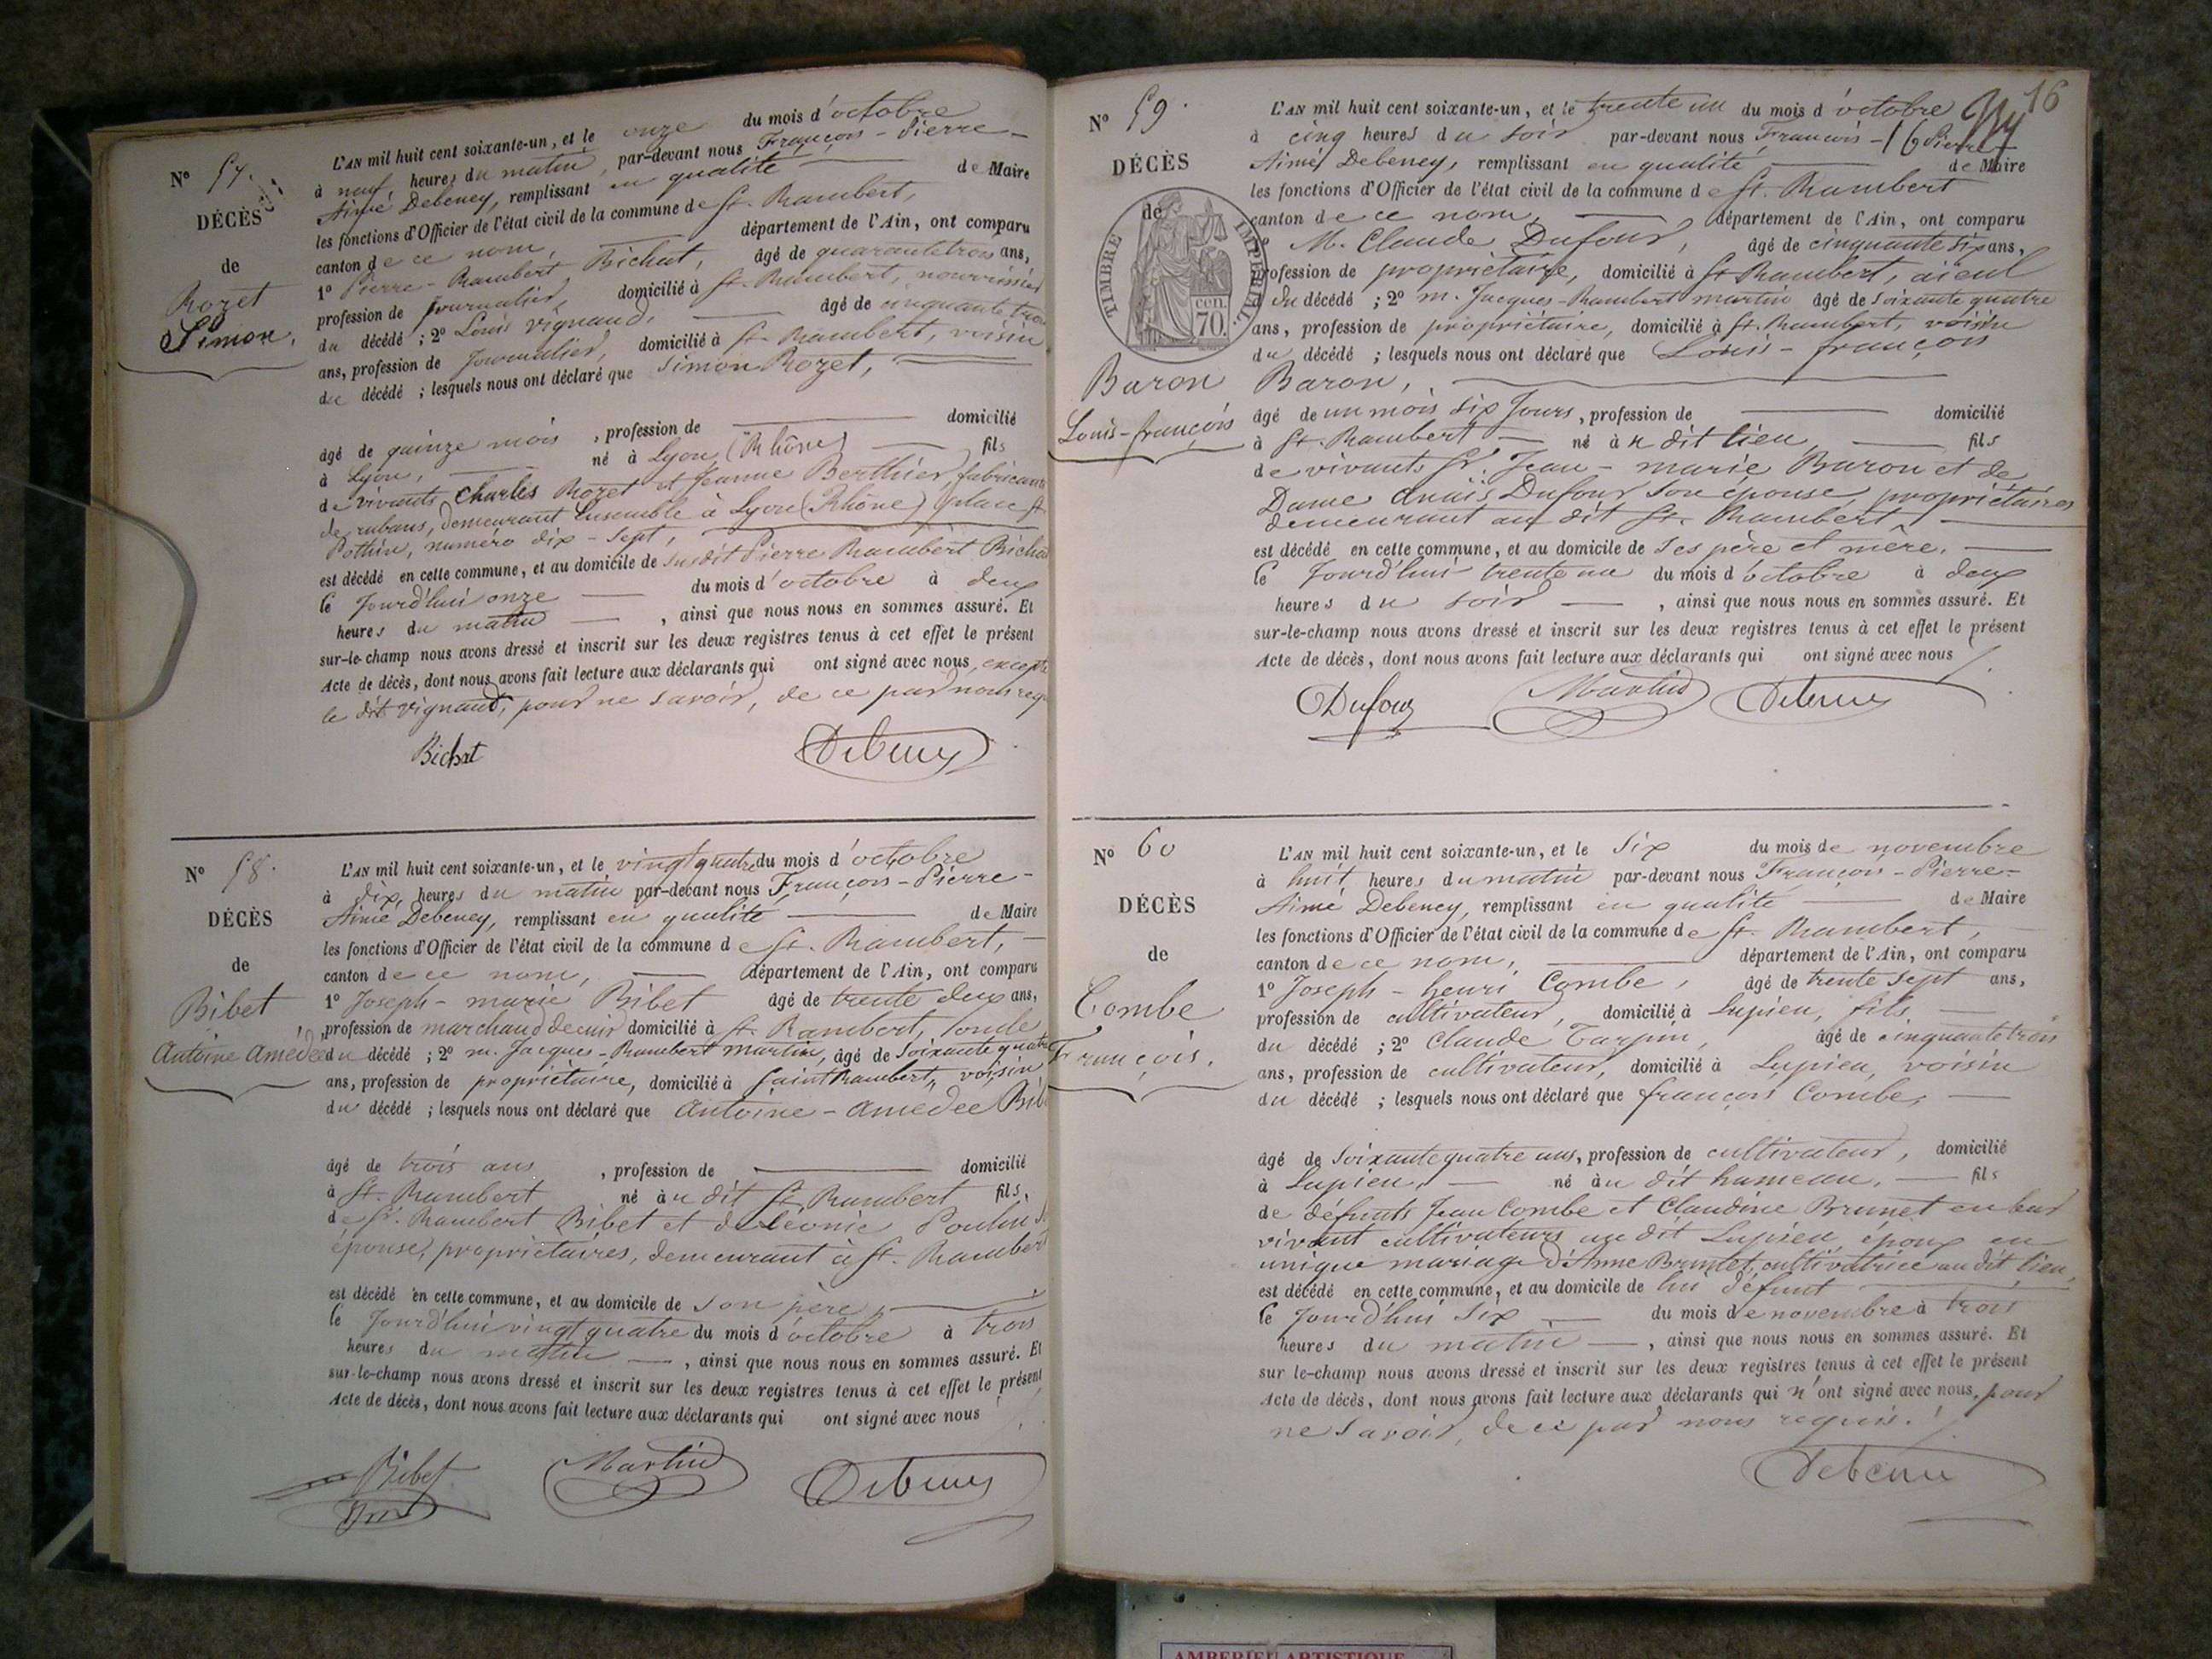 N° 57.
DÉCÈS
de
Rozet
Simon.
L'AN mil huit cent soixante-un, et le onze du mois d'octobre
à neuf heures du matin, par-devant nous François-Pierre-
Aimé Debeney, remplissant en qualité de Maire
les fonctions d'Officier de l'état civil de la commune de St. Rambert,
canton de ce nom, département de l'Ain, ont comparu
1° Pierre-Rambert Bichat, âgé de quarante trois ans,
profession de Journalier, domicilié à St. Rambert, nourricier
du décédé ; 2° Louis Vignaud, âgé de cinquante trois
ans, profession de Journalier, domicilié à St. Rambert, voisin
du décédé ; lesquels nous ont déclaré que Simon Rozet,
âgé de quinze mois, profession de domicilié
à Lyon, né à Lyon (Rhône) fils
de vivants Charles Rozet et Jeanne Berthier, fabricants
de rubans, demeurant ensemble à Lyon (Rhône) place St.
Pothin, numéro dix-sept,
est décédé en cette commune, et au domicile de susdit Pierre Rambert Bichat
le Jourd'hui onze du mois d'octobre à deux
heures du matin, ainsi que nous nous en sommes assuré. Et
sur-le-champ nous avons dressé et inscrit sur les deux registres tenus à cet effet le présent
Acte de décès, dont nous avons fait lecture aux déclarants qui ont signé avec nous, excepté
le dit Vignaud, pour ne savoir, de ce par nous requ
Bichat Debeney
N° 58.
DÉCÈS
de
Bibet
Antoine Amédée
L'AN mil huit cent soixante-un, et le vingt quatre du mois d'octobre
à dix heures du matin par-devant nous François-Pierre-
Aimé Debeney, remplissant en qualité de Maire
les fonctions d'Officier de l'état civil de la commune de St. Rambert,
canton de ce nom, département de l'Ain, ont comparu
1° Joseph-marie Bibet âgé de trente deux ans,
profession de marchand de cuir domicilié à St. Rambert, l'oncle
du décédé ; 2° m. Jacques-Rambert Martin, âgé de soixante quatre
ans, profession de propriétaire, domicilié à Saint Rambert, voisin
du décédé ; lesquels nous ont déclaré que Antoine-Amédée Bib
âgé de trois ans, profession de domicilié
à St. Rambert né au dit St. Rambert fils,
de Sr. Rambert Bibet et de Léonie Poulin
épouse, propriétaires, demeurant à St. Rambert
est décédé en cette commune, et au domicile de son père,
le Jourd'hui vingt quatre du mois d'octobre à trois
heures du matin, ainsi que nous nous en sommes assuré. Et
sur-le-champ nous avons dressé et inscrit sur les deux registres tenus à cet effet le présent
Acte de décès, dont nous avons fait lecture aux déclarants qui ont signé avec nous
Bibet Martin Debeney
16
16
N° 59.
DÉCÈS
de
TIMBRE IMPÉRIAL.
70 cen.
Baron
Louis-françois
L'AN mil huit cent soixante-un, et le trente un du mois d'octobre
à cinq heures du soir par-devant nous François-Pierre-
Aimé Debeney, remplissant en qualité de Maire
les fonctions d'Officier de l'état civil de la commune de St. Rambert
canton de ce nom, département de l'Ain, ont comparu
M. Claude Dufour, âgé de cinquante six ans,
profession de propriétaire, domicilié à St. Rambert, aïeul
du décédé ; 2° m. Jacques-Rambert martin âgé de soixante quatre
ans, profession de propriétaire, domicilié à St. Rambert, voisin
du décédé ; lesquels nous ont déclaré que Louis-françois
Baron,
âgé de un mois six Jours, profession de domicilié
à St. Rambert né au dit lieu, fils
de vivants Sr. Jean-marie Baron et de
Dame Anaïs Dufour son épouse, propriétaires
demeurant au dit St. Rambert
est décédé en cette commune, et au domicile de ses père et mère.
le Jourd'hui trente un du mois d'octobre à deux
heures du soir, ainsi que nous nous en sommes assuré. Et
sur-le-champ nous avons dressé et inscrit sur les deux registres tenus à cet effet le présent
Acte de décès, dont nous avons fait lecture aux déclarants qui ont signé avec nous
Dufour Martin Debeney
N° 60
DÉCÈS
de
Combe
François.
L'AN mil huit cent soixante-un, et le six du mois de novembre
à huit heures du matin par-devant nous François-Pierre-
Aimé Debeney, remplissant en qualité de Maire
les fonctions d'Officier de l'état civil de la commune de St. Rambert,
canton de ce nom, département de l'Ain, ont comparu
1° Joseph-henri Combe, âgé de trente sept ans,
profession de cultivateur, domicilié à Lupieu, fils
du décédé ; 2° Claude Tarpin, âgé de cinquante trois
ans, profession de cultivateur, domicilié à Lupieu, voisin
du décédé ; lesquels nous ont déclaré que françois Combe,
âgé de soixante quatre ans, profession de cultivateur, domicilié
à Lupieu, né au dit hameau, fils
de défunts Jean Combe et Claudine Brunet en leur
vivant cultivateurs au dit Lupieu, époux en
unique mariage d'Anne Brunet, cultivatrice au dit lieu,
est décédé en cette commune, et au domicile de lui défunt
le Jourd'hui six du mois de novembre à trois
heures du matin, ainsi que nous nous en sommes assuré. Et
sur le-champ nous avons dressé et inscrit sur les deux registres tenus à cet effet le présent
Acte de décès, dont nous avons fait lecture aux déclarants qui n'ont signé avec nous, pour
ne savoir, de ce par nous requis.
Debeney
AMBERIEU ARTISTIQUE